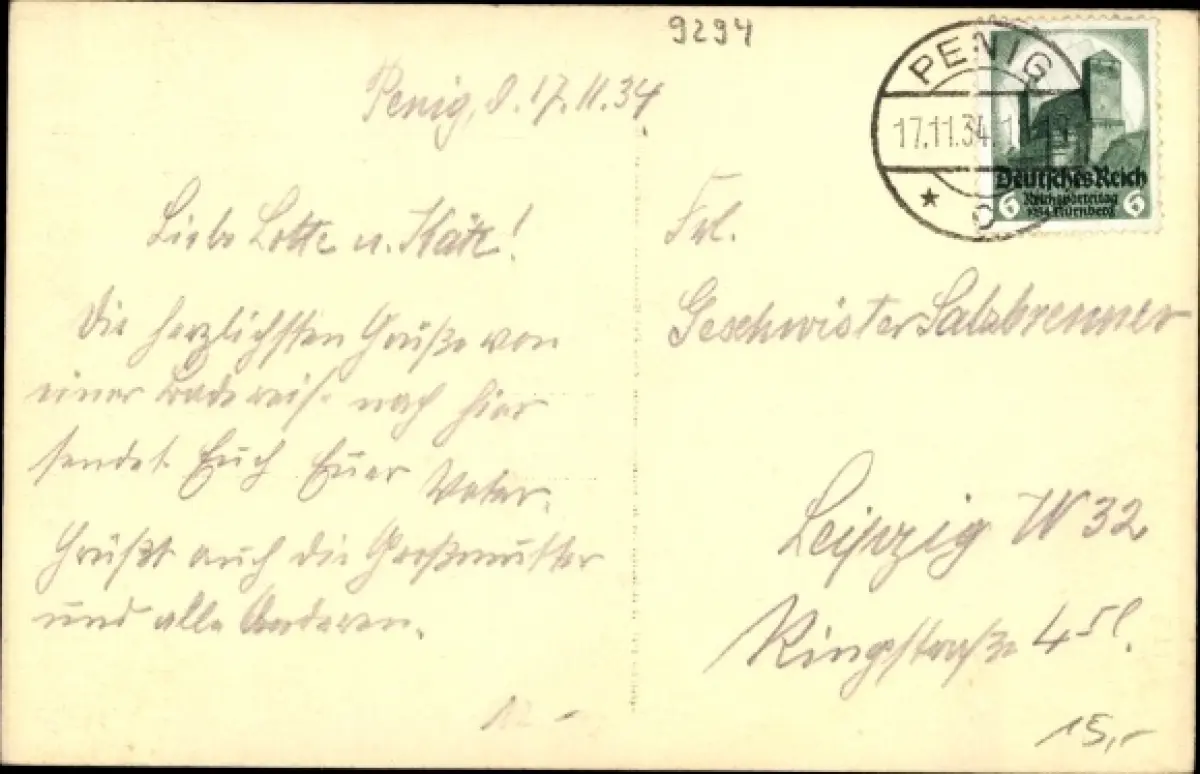 9294
Penig, d. 17.11.34
Liebe Lotte u. Käte!
Die herzlichsten Grüße von
einer Badereise nach hier
sendet Euch Euer Vater.
Grüßt auch die Großmutter
und alle Anderen.
PENIG
17.11.34.
Deutsches Reich
Reichsparteitag
1934 Nürnberg
6 6
Frl.
Geschwister Salzbrenner
Leipzig W 32
Ringstraße 4
15,-